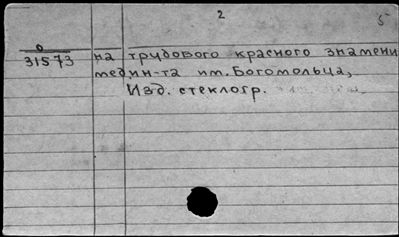 2
5
0
31573 на трудового красного знамени
медин-та им. Богомольца,
Изд. стеклогр.